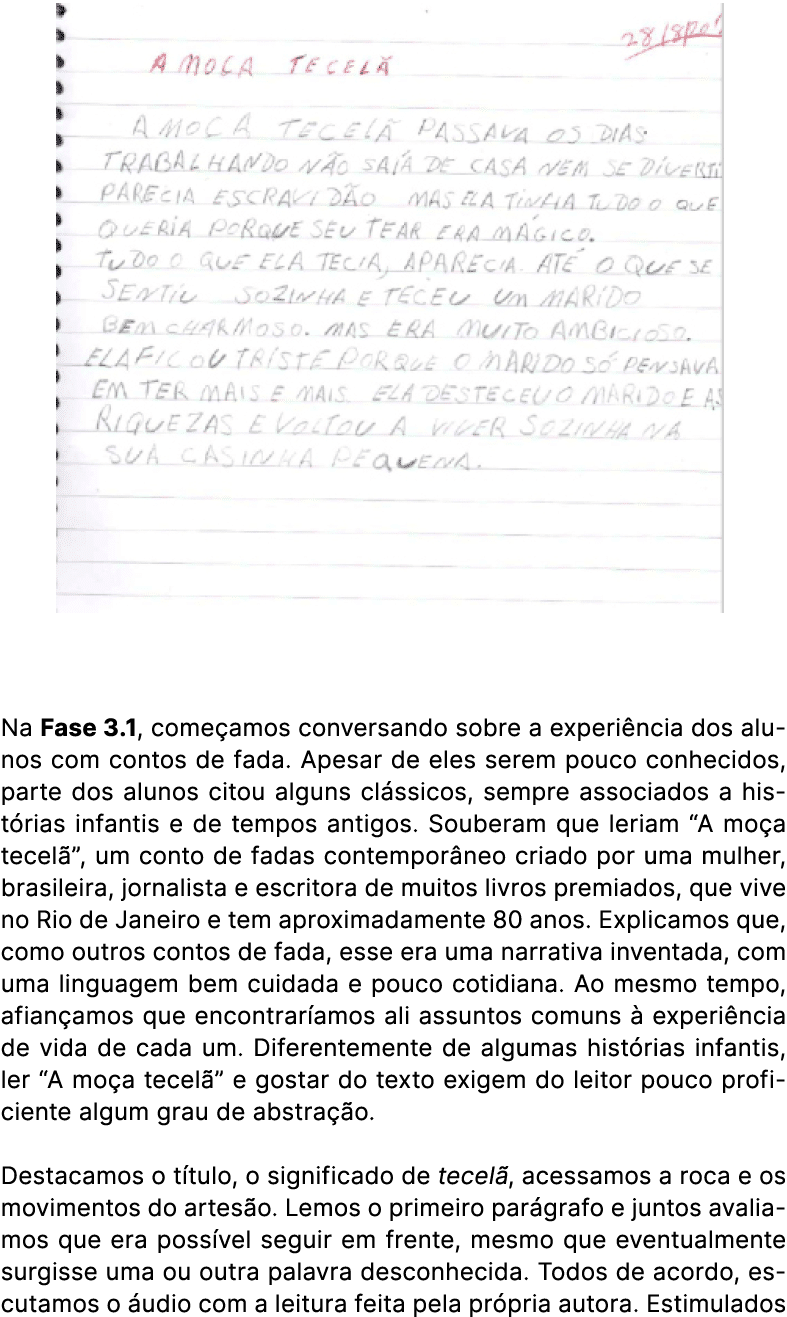 28/8/201
A MOCA TECELÃ
A MOCA TECELÃ PASSAVA OS DIAS
TRABALHANDO NÃO SAÍA DE CASA NEM SE DIVERTI
PARECIA ESCRAVIDÃO MAS ELA TINHA TUDO O QUE
QUERIA PORQUE SEU TEAR ERA MÁGICO.
TUDO O QUE ELA TECIA, APARECIA. ATÉ O QUE SE
SENTIU SOZINHA E TECEU UM MARIDO
BEM CHARMOSO. MAS ERA MUITO AMBICIOSO.
ELA FICOU TRISTE PORQUE O MARIDO SÓ PENSAVA
EM TER MAIS E MAIS. ELA DESTECEU O MARIDO E AS
RIQUEZAS E VOLTOU A VIVER SOZINHA NA
SUA CASINHA PEQUENA.
Na Fase 3.1, começamos conversando sobre a experiência dos alu-
nos com contos de fada. Apesar de eles serem pouco conhecidos,
parte dos alunos citou alguns clássicos, sempre associados a his-
tórias infantis e de tempos antigos. Souberam que leriam “A moça
tecelã”, um conto de fadas contemporâneo criado por uma mulher,
brasileira, jornalista e escritora de muitos livros premiados, que vive
no Rio de Janeiro e tem aproximadamente 80 anos. Explicamos que,
como outros contos de fada, esse era uma narrativa inventada, com
uma linguagem bem cuidada e pouco cotidiana. Ao mesmo tempo,
afiançamos que encontraríamos ali assuntos comuns à experiência
de vida de cada um. Diferentemente de algumas histórias infantis,
ler “A moça tecelã” e gostar do texto exigem do leitor pouco profi-
ciente algum grau de abstração.
Destacamos o título, o significado de tecelã, acessamos a roca e os
movimentos do artesão. Lemos o primeiro parágrafo e juntos avalia-
mos que era possível seguir em frente, mesmo que eventualmente
surgisse uma ou outra palavra desconhecida. Todos de acordo, es-
cutamos o áudio com a leitura feita pela própria autora. Estimulados